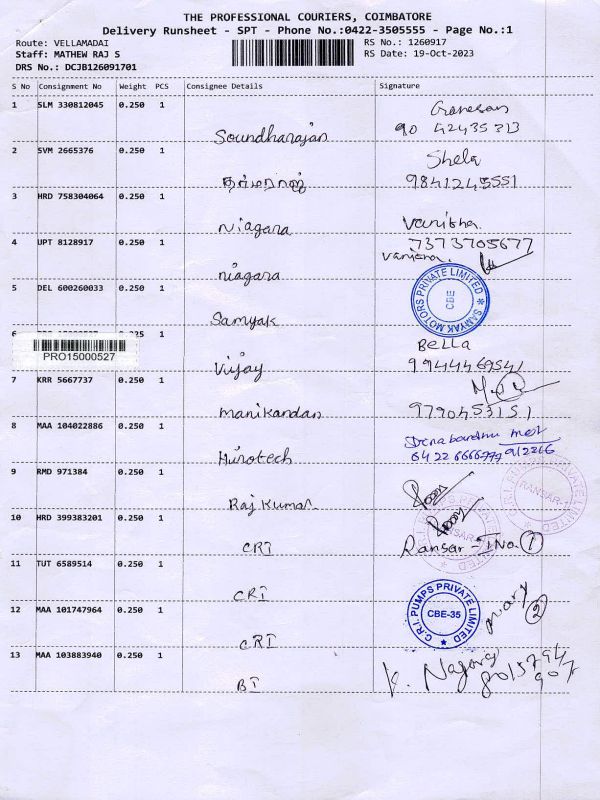 THE PROFESSIONAL COURIERS, COIMBATORE
Delivery Runsheet - SPT - Phone No.:0422-3505555 - Page No.:1
Route: VELLAMADAI
RS No.: 1260917
Staff: MATHEW RAJ S
RS Date: 19-Oct-2023
DRS No.: DCJB126091701
S No Consignment No Weight PCS Consignee Details Signature
1 SLM 330812045 0.250 1
Ganesan
Soundharajan 90 42435313
2 SVM 2665376 0.250 1
Shela
9841245551
3 HRD 758304064 0.250 1
Niagara Vanitha.
7373705677
4 UPT 8128917 0.250 1
Vanitha.
niagara
5 DEL 600260033 0.250 1
SAMYAK MOTORS PRIVATE LIMITED
CBE
Samyak
6
PRO15000527
Bella
Vijay
7 KRR 5667737 0.250 1
Manikandan 9790453151
8 MAA 104022886 0.250 1
Hirotech
9 RMD 971384 0.250 1
Raj Kumar.
10 HRD 399383201 0.250 1
CRI Ransar - INo. 1
11 TUT 6589514 0.250 1
CRI
C.R.I. PUMPS PRIVATE LIMITED
CBE-35
12 MAA 101747964 0.250 1
2
CRI
13 MAA 103883940 0.250 1
BI